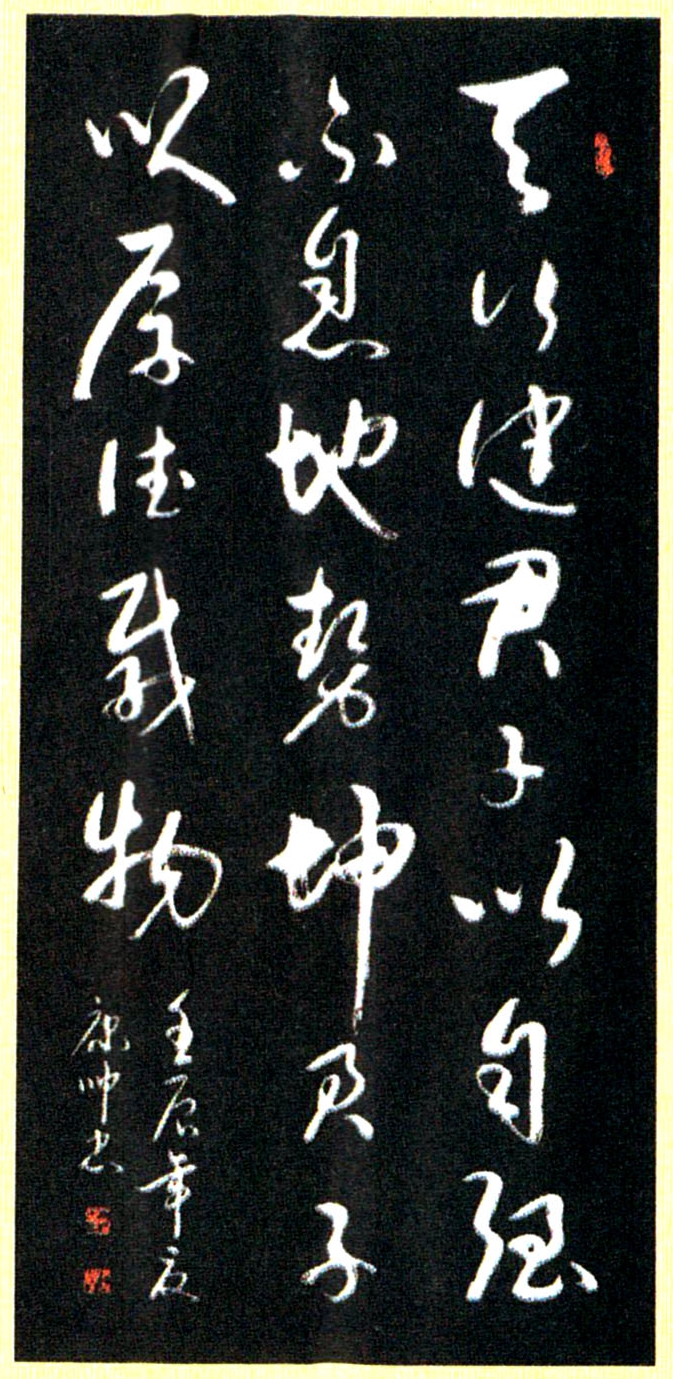 天行健君子以自强
不息地势坤君子
以厚德载物
壬辰年夏
康帅书